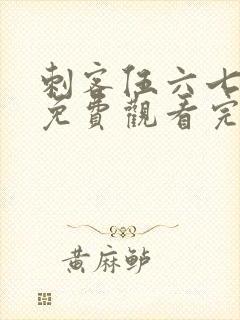 刺客伍六七
免費觀看完
黄麻鲈